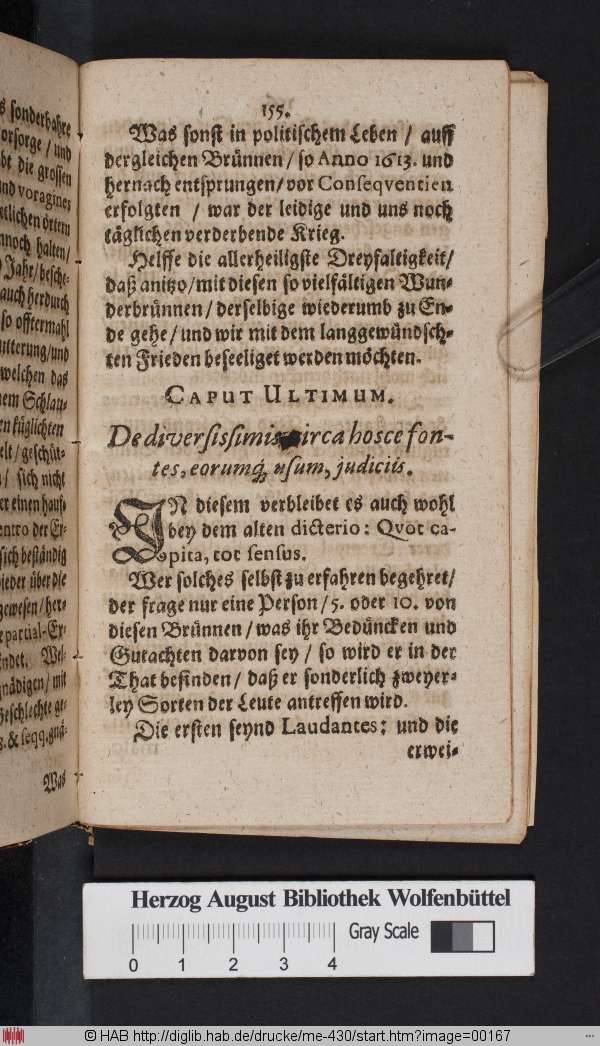 s sonderbahre
orsorge / und
bt die grossen
nd voragines
etlichen örtern
nnoch halten /
Jahr / besche-
auch herdurch
so offtermahl
utterung / und
welchen das
nem Schlau-
en küglichten
elt / geschüt-
n / sich nicht
er einen hauf-
entro der Er-
sich beständig
ieder über die
gewesen / her-
epartial-Er-
ndet. Wel-
gnädigen / mit
Geschlechte ge-
g. & seqq. gnä-
Was
155.
Was sonst in politischem Leben / auff
dergleichen Brünnen / so Anno 1613. und
hernach entsprungen / vor Conseqventien
erfolgten / war der leidige und uns noch
täglichen verderbende Krieg.
Helffe die allerheiligste Dreyfaltigkeit /
daß anitzo / mit diesen so vielfältigen Wun-
derbrünnen / derselbige wiederumb zu En-
de gehe / und wir mit dem langgewündsch-
ten Frieden beseeliget werden möchten.
CAPUT ULTIMUM.
De diversissimis circa hosce fon-
tes, eorumq́; usum, judiciis.
IN diesem verbleibet es auch wohl
bey dem alten dicterio: Qvot ca-
pita, tot sensus.
Wer solches selbst zu erfahren begehret /
der frage nur eine Person / 5. oder 10. von
diesen Brünnen / was ihr Bedüncken und
Gutachten darvon sey / so wird er in der
That befinden / daß er sonderlich zweyer-
ley Sorten der Leute antreffen wird.
Die ersten seynd Laudantes: und die
erwei-
Herzog August Bibliothek Wolfenbüttel
Gray Scale
0 1 2 3 4
© HAB http://diglib.hab.de/drucke/me-430/start.htm?image=00167